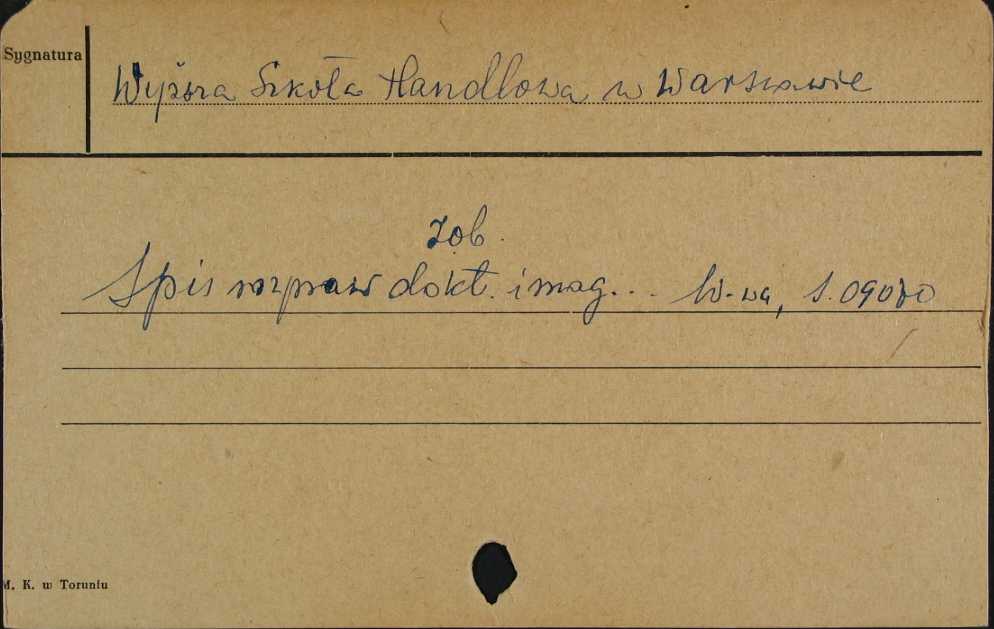 Sygnatura
Wyższa Szkoła Handlowa w Warszawie
zob.
Spis rozpraw dokt. i mag... W-wa, s. 09080
M. K. w Toruniu